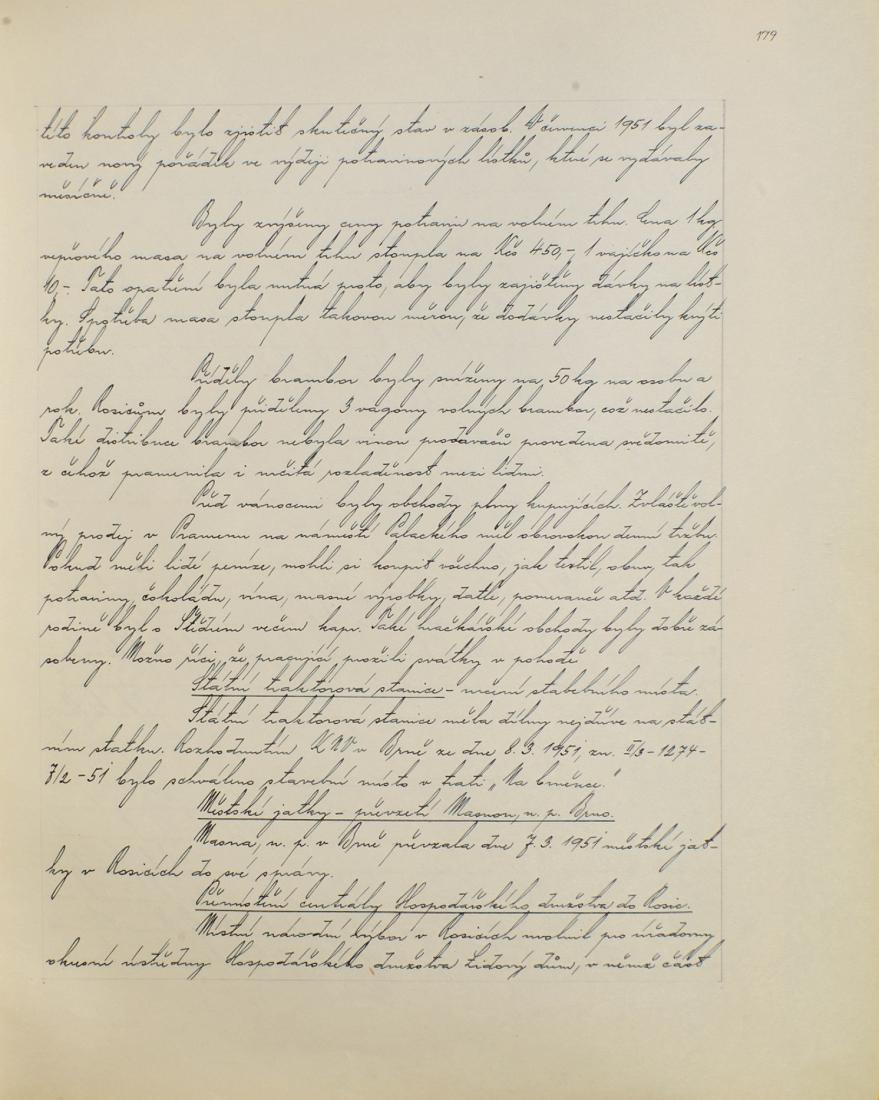 179
této kontroly bylo zjistit skutečný stav v zásob. V červenci 1951 byl za-
veden nový pořádek ve výdeji potravinových lístků, které se vydávaly
měsíčně.
Byly zvýšeny ceny potravin na volném trhu. Cena 1 kg
vepřového masa na volném trhu stoupla na Kčs 450,- 1 vajíčko na Kčs
10,-. Tato opatření byla nutná proto, aby byly zajištěny dávky na líst-
ky. Spotřeba masa stoupla takovou měrou, že dodávky nestačily krýti
potřebu.
Příděly brambor byly sníženy na 50 kg na osobu a
rok. Rosicům byly přiděleny 3 vagony volných brambor, což nestačilo.
Také distribuce brambor nebyla vinou prodavačů provedena svědomitě,
z čehož pramenila i určitá rozladěnost mezi lidmi.
Před vánocemi byly obchody plny kupujících. Zvláště vol-
ný prodej v Prameni na náměstí Palackého měl obrovskou denní tržbu.
Pokud měli lidé peníze, mohli si koupit všechno, jak textil, obuv, tak
potraviny, čokoládu, vína, masné výrobky, datle, pomeranče atd. V každé
rodině byl o Štědrém večeru kapr. Také hračkářské obchody byly dobře zá-
sobeny. Možno říci, že pracující prožili svátky v pohodě
Státní traktorová stanice - určení stavebního místa.
Státní traktorová stanice měla dílny nejdříve na stát-
ním statku. Rozhodnutím KNV v Brně ze dne 8. 3. 1951, zn. II/3-1274-
7/2-51 bylo schváleno stavební místo v trati „Na
Městské jatky - převzetí Masnou, n. p. Brno.
Masna, n. p. v Brně převzala dne 7. 3. 1951 městské jat-
ky v Rosicích do své správy.
Přemístění centrály Hospodářského družstva do Rosic.
Místní národní výbor v Rosicích uvolnil pro úřadovny
okresní ústředny Hospodářského družstva Lidový dům, v němž část